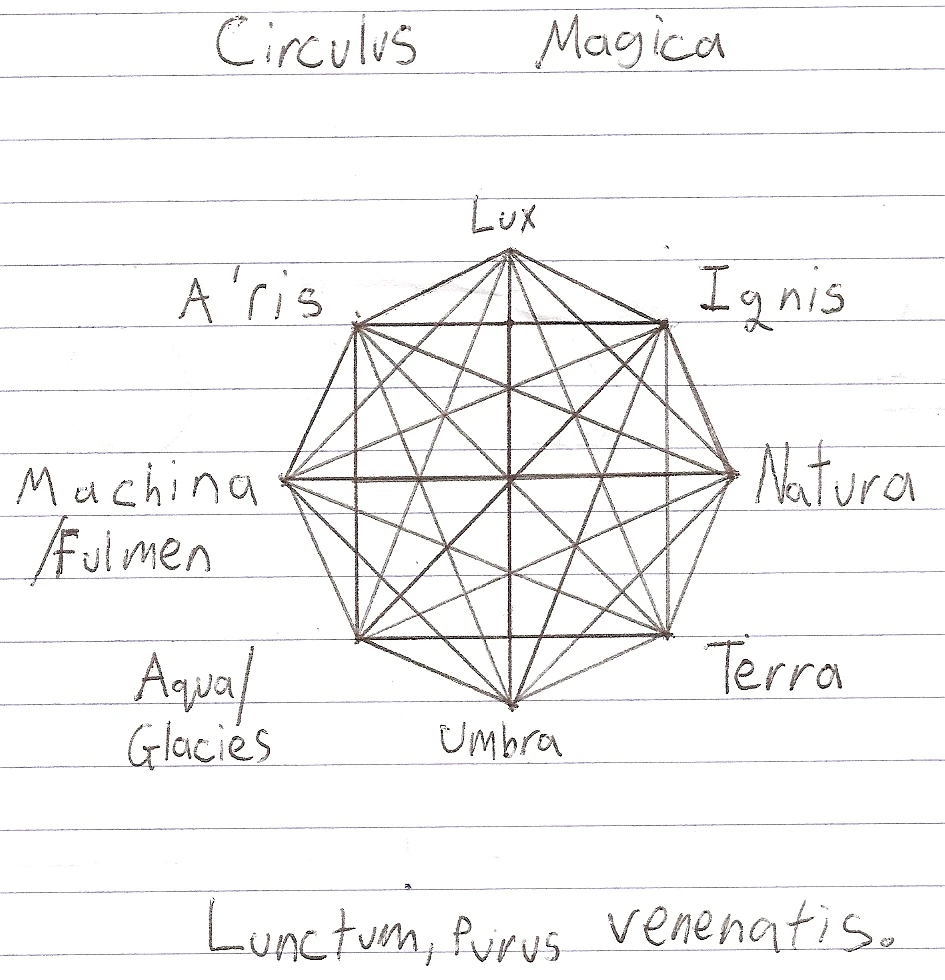 Circulus Magica
Lux
A'ris
Ignis
Machina
/Fulmen
Natura
Aqua/
Glacies
Terra
Umbra
Lunctum, purus venenatis.